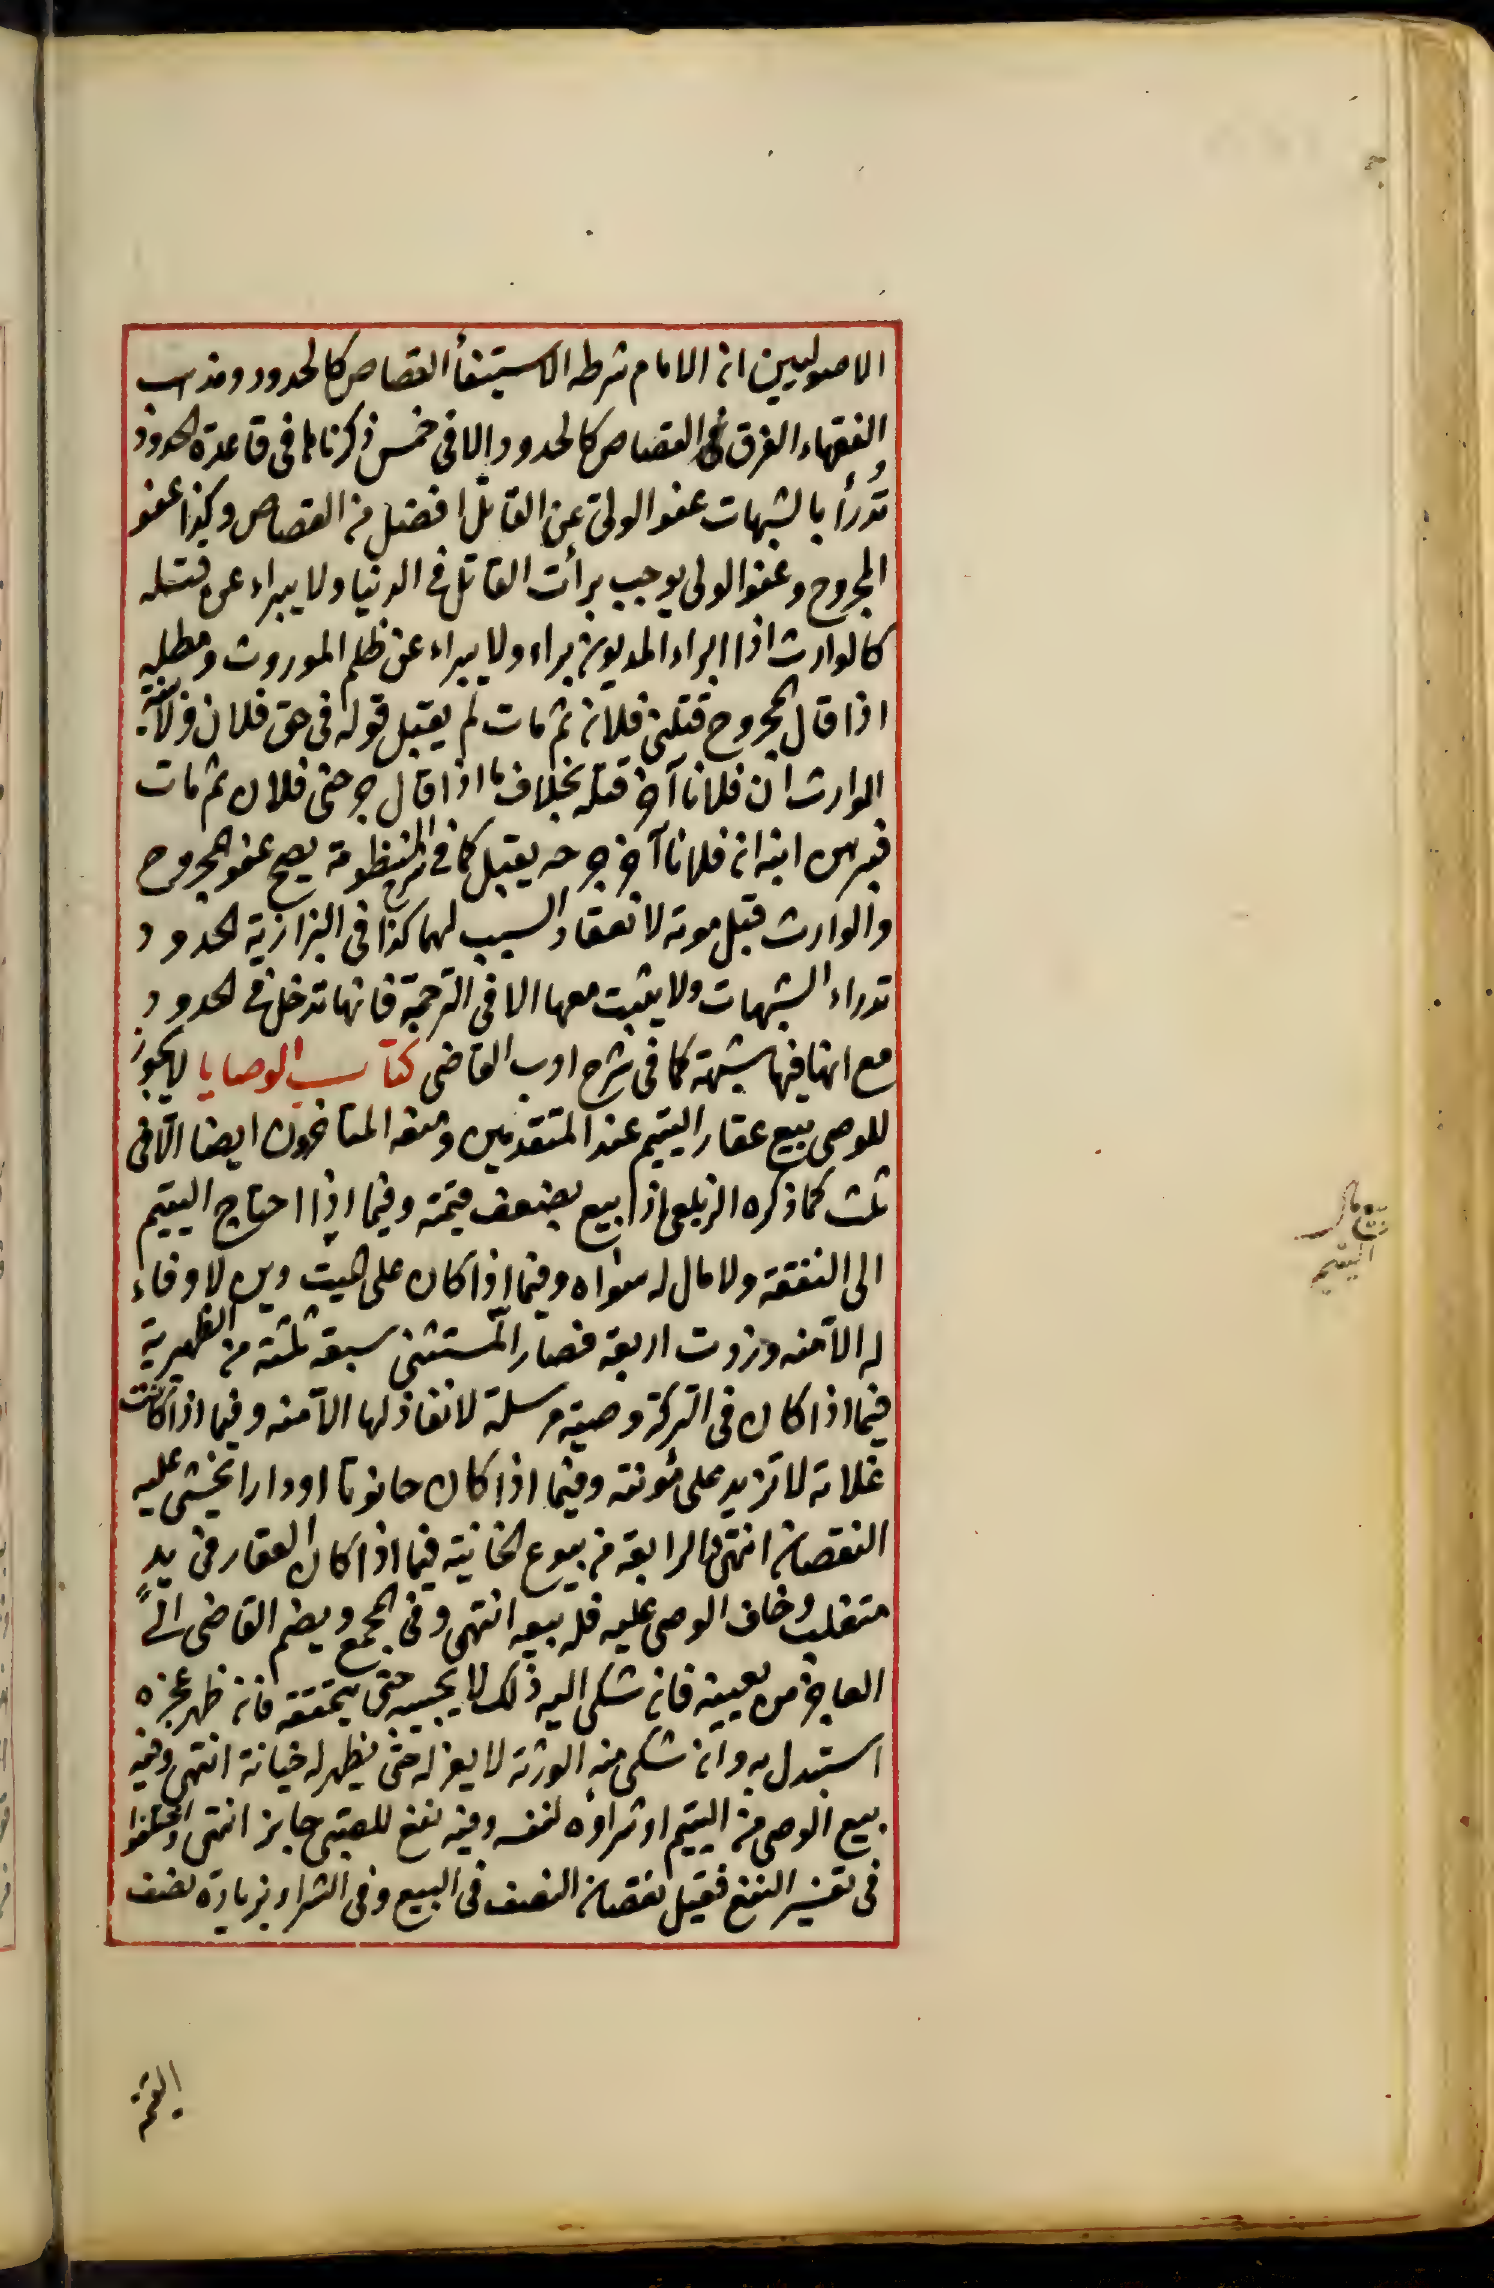 الاصوليين ان الامام شرطه الاستيفأ القصاص كالحدود ومذهب
الفقهاء الفرق القصاص كالحدود الا فى خمس ذكرناها فى قاعدة الحدود
تدرأ بالشبهات عفو الولى عن القاتل افضل من القصاص وكذا عفو
المجروح وعفو الولى يوجب برأت القاتل فى الدنيا ولا يبراء عن قتله
كالوارث اذا ابراء المديون براء ولا يبراء عن ظلم الموروث ومطله
اذا قال المجروح قتلنى فلان ثم مات لم يقبل قوله فى حق فلان ولا بينة
الوارث ان فلانا آخر قتله بخلاف ما اذا قال جرحنى فلان ثم مات
فبرهن ابنه ان فلانا آخر جرحه يقبل كما فى شرح المنظومة يصح عفو المجروح
والوارث قبل موته لانعقاد السبب لهما كذا فى البزازية الحدود
تدراء بالشبهات ولا يثبت معها الا فى الترجمة فانها تدخل فى الحدود
مع انها فيها شبهة كما فى شرح ادب القاضى كتاب الوصايا لا يجوز
للوصى بيع عقار اليتيم عند المتقدمين ومنعه المتأخرون ايضا الا فى
ثلث كما ذكره الزيلعى اذا بيع بضعف قيمته وفيما اذا احتاج اليتيم
الى النفقة ولا مال له سواه وفيما اذا كان على الميت دين لا وفاء
له الا منه وزدت اربعة فصار المستثنى سبعة ثلثة من الظهيرية
فيما اذا كان فى التركة وصية مرسلة لا نفاذ لها الا منه وفيما اذا كانت
غلاته لا تزيد على مئونته وفيما اذا كان حانوتا او دارا يخشى عليه
النقصان انتهى والرابعة من بيوع الخانية فيما اذا كان العقار فى يد
متغلب وخاف الوصى عليه فله بيعه انتهى وفى المجمع ويضم القاضى الى
العاجز من يعينه فان شكى اليه ذلك لا يجيبه حتى يتحققه فان ظهر عجزه
استبدل به وان شكى منه الورثة لا يعزله حتى يظهر له خيانة انتهى وفيه
بيع الوصى من اليتيم او شراؤه لنفسه وفيه نفع للصبى جايز انتهى واختلفوا
فى تفسير النفع فقيل نقصان النصف فى البيع وفى الشراء بزيادة نصف
بيع مال
اليتيم
القيمة